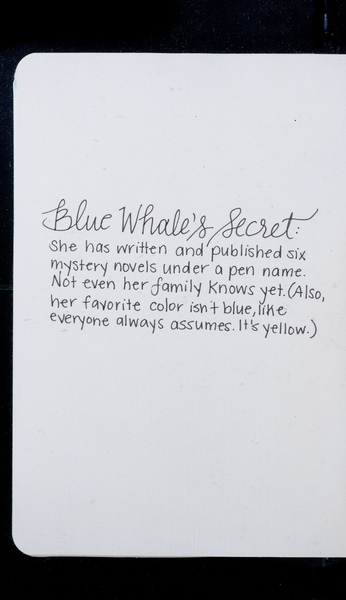 Blue Whale's Secret:
She has written and published six
mystery novels under a pen name.
Not even her family knows yet. (Also,
her favorite color isn't blue, like
everyone always assumes. It's yellow.)